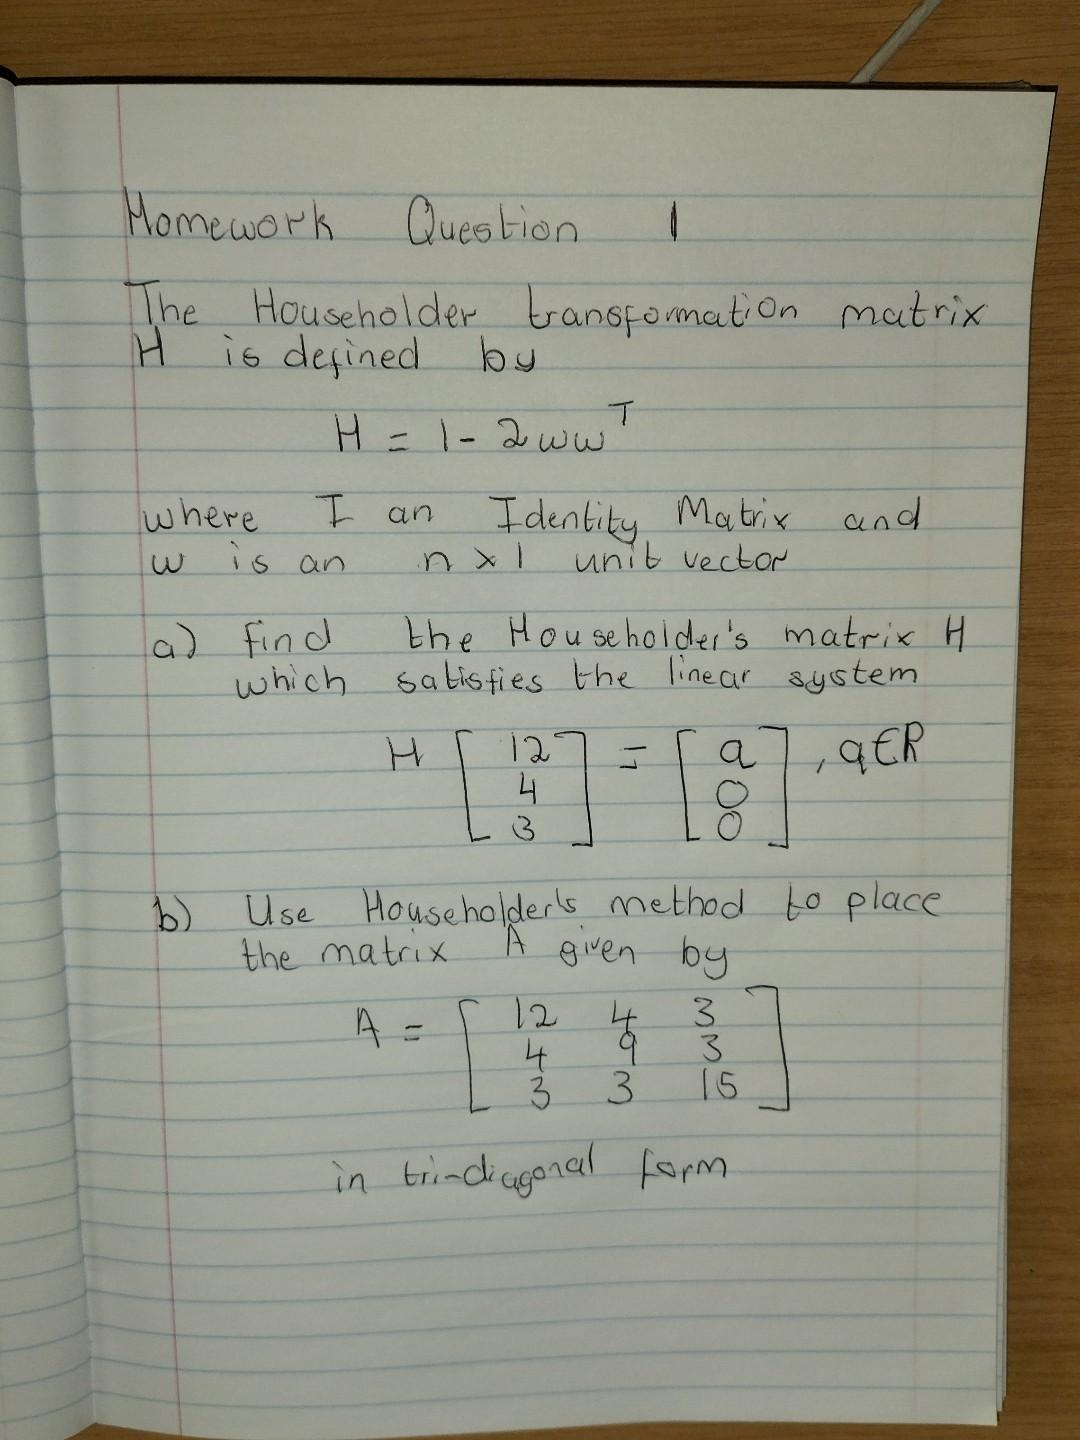 Homework Question 1
The Householder transformation matrix
H is defined by
H = 1 - 2ww^T
where I an Identity Matrix and
w is an n x 1 unit vector
a) find the Householder's matrix H
which satisfies the linear system
H [ 12 ] = [ a ] , a∈R
4 0
3 0
b) Use Householder's method to place
the matrix A given by
A = [ 12 4 3 ]
4 9 3
3 3 15
in tri-diagonal form